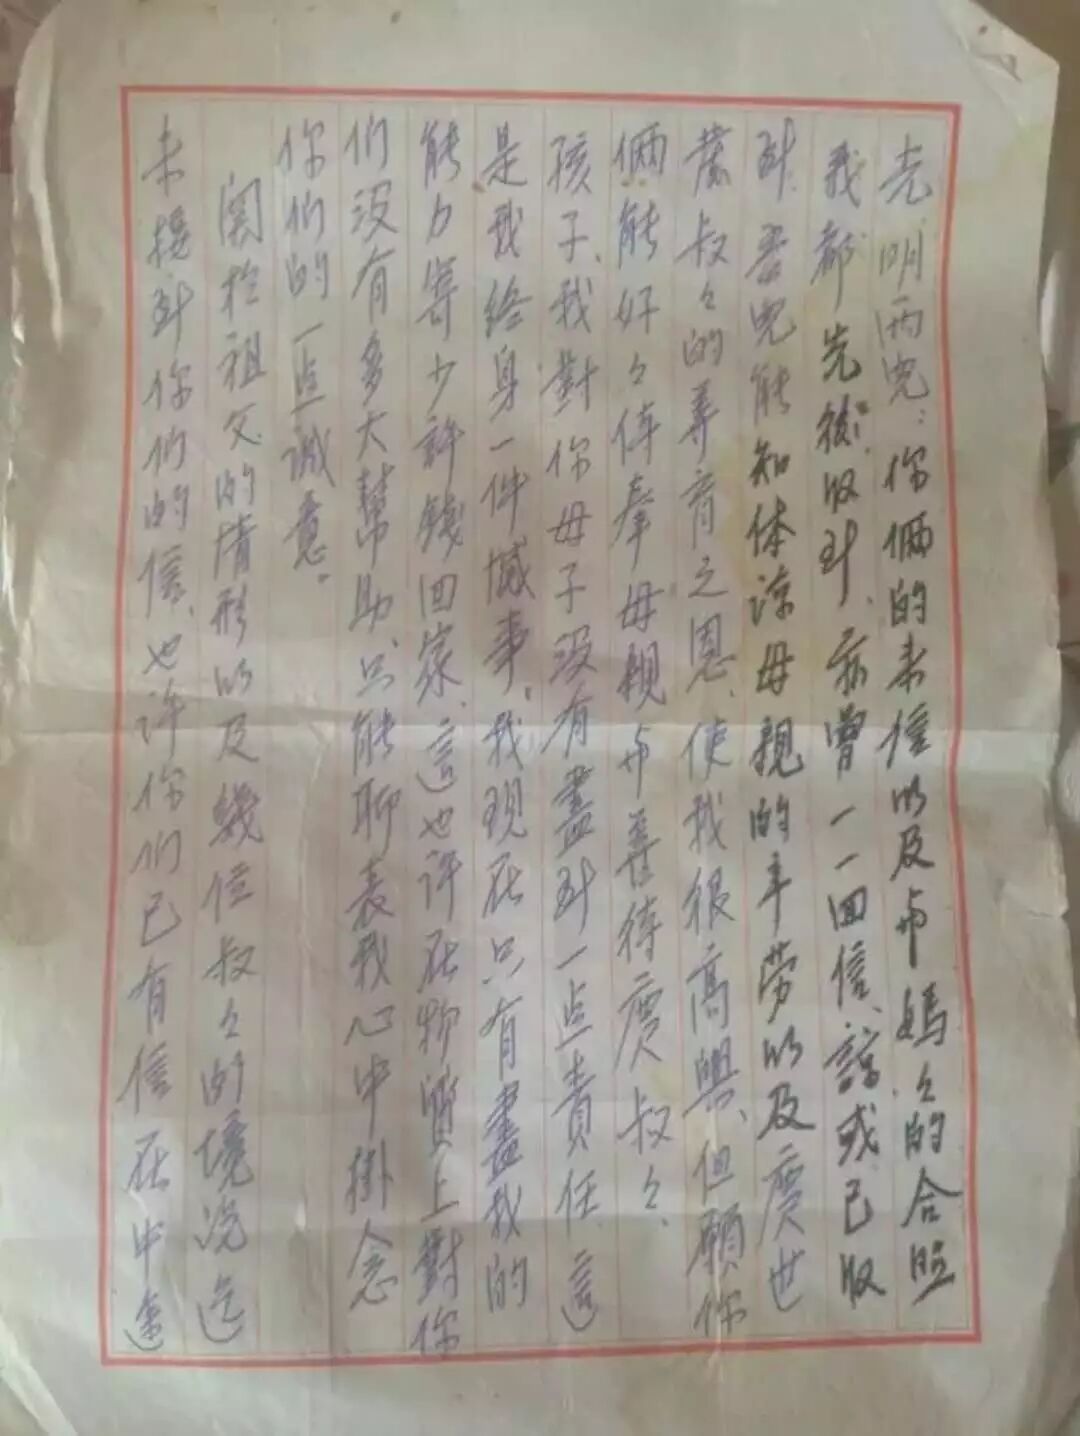 克明两兒：你倆的来信以及与媽々的合照
我都先後收到、亦曾一一回信、諒或已收
到、吾兒能知体諒母親的辛劳以及庹世
叔々的养育之恩、使我很高興、但願你
倆能好々侍奉母親与善待庹叔々、
孩子、我對你母子没有盡到一点責任、這
是我终身一件憾事、我现在只有盡我的
能力寄少許錢回家、這也许在物質上對你
们没有多大幫助、只能聊表我心中掛念
你们的一点诚意。
関於祖父的情形以及幾位叔々的境况迄
未接到你们的信、也许你们已有信在中途